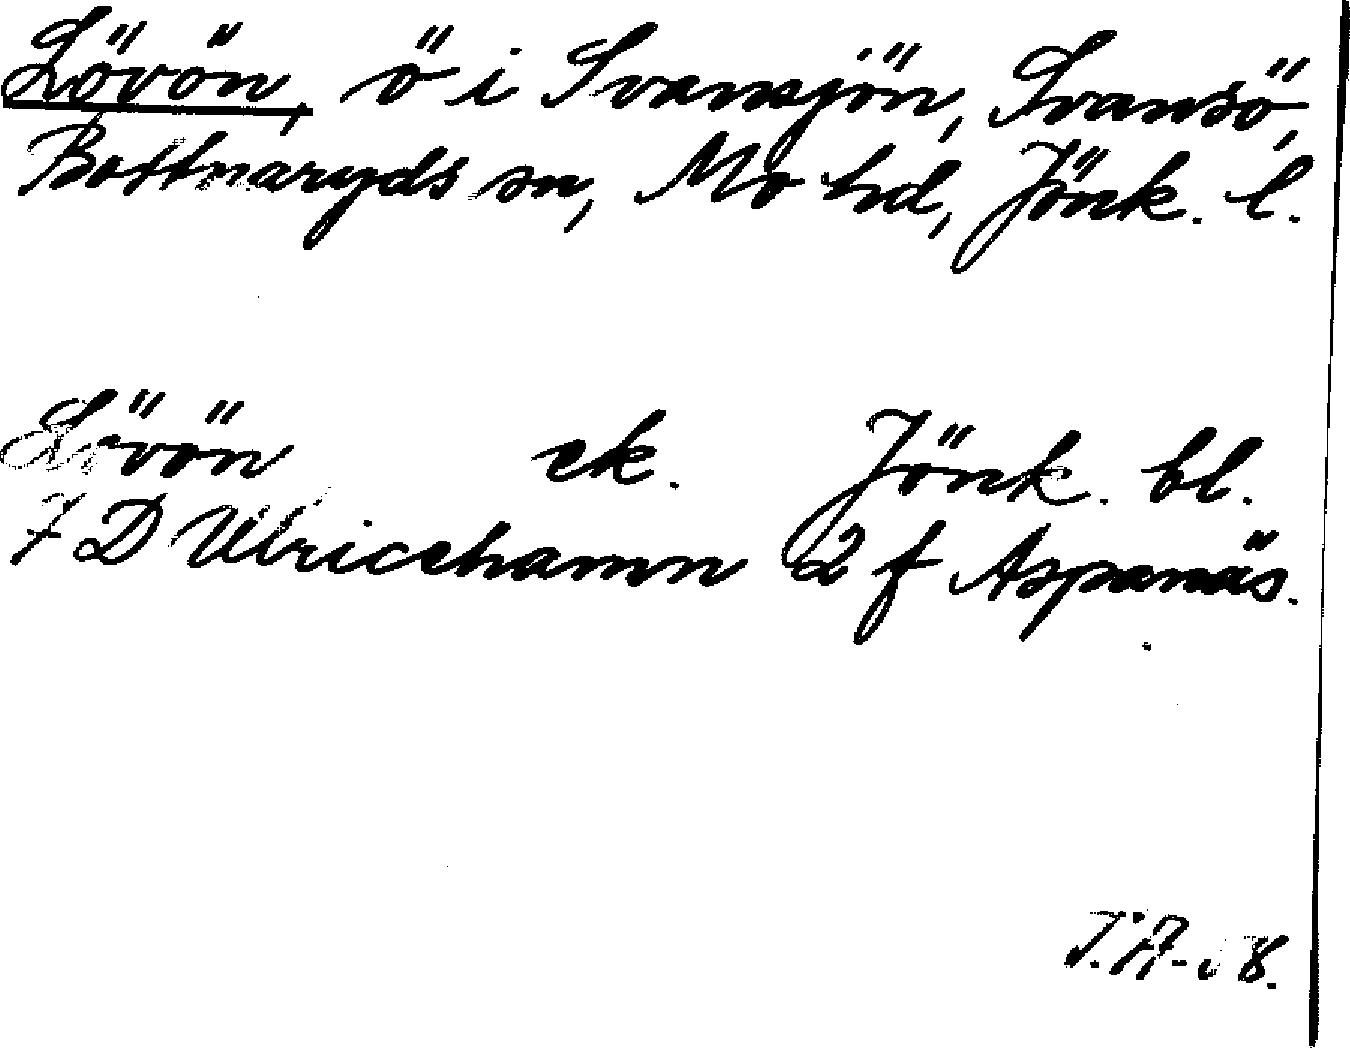 Lövön, ö i Svansjön, Svansö,
Bottnaryds sn, Mo hd, Jönk. l.
Lövön ek. Jönk. bl.
7 D Ulricehamn 2 f Aspanäs.